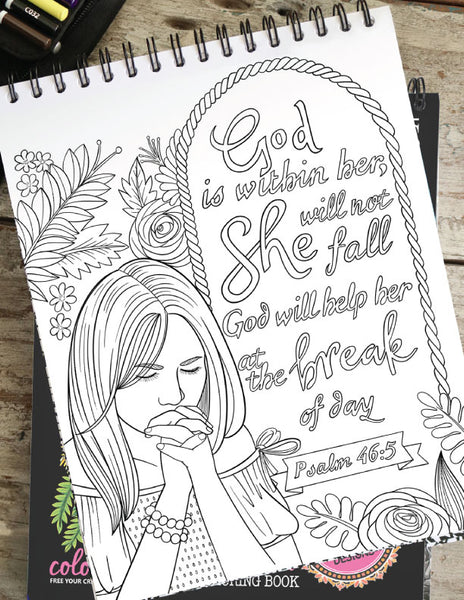 C032
God
is within her,
will not
She fall
God will help her
at the break
of day
Psalm 46:5
colo
FREE YOUR CR
ORING BOOK
DESIGNS